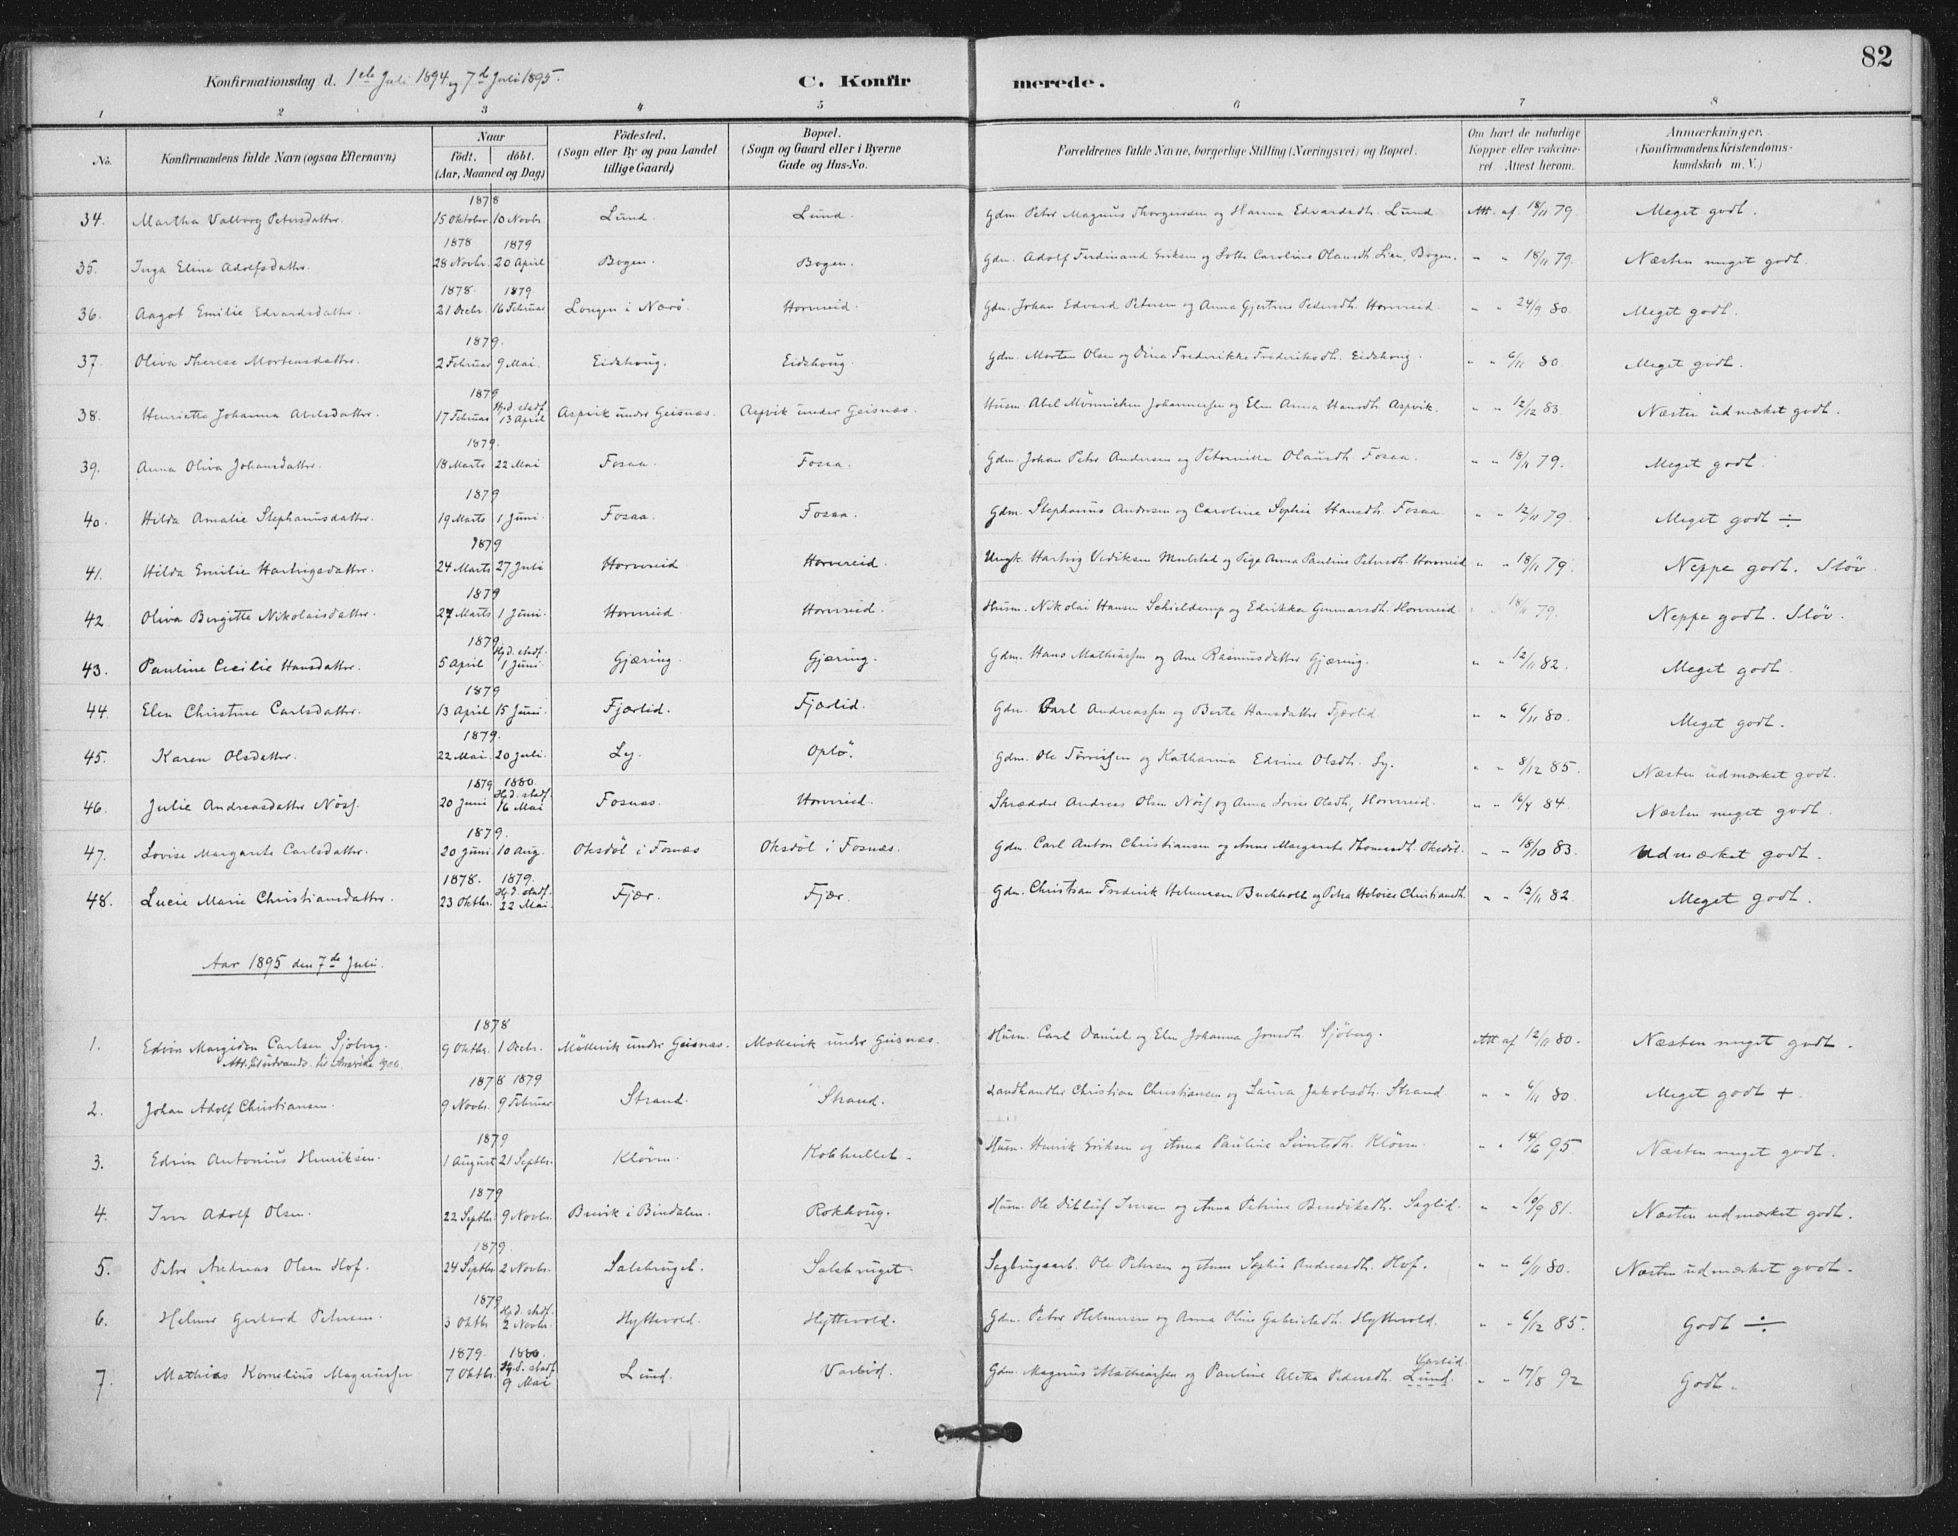 82
Konfirmationsdag d. 1ste Juli 1894 og 7de Juli 1895.
C. Konfirmerede.
1 2 3 4 5 6 7 8
No.
Konfirmandens fulde Navn (ogsaa Efternavn)
Naar
födt, döbt.
(Aar, Maaned og Dag)
Födested.
(Sogn eller By og paa Landet
tillige Gaard)
Bopæl.
(Sogn og Gaard eller i Byerne
Gade og Hus-No.
Forældrenes fulde Navne, borgerlige Stilling (Næringsvei) og Bopæl.
Om havt de naturlige
Kopper eller vakcine-
ret. Attest herom.
Anmærkninger.
(Konfirmandens Kristendoms-
kundskab m. V.)
1878
34. Martha Valborg Petersdatter. 15 Oktober 10 Novbr. Lund. Lund. Gdm. Peter Magnus Thorgersen og Hanna Edvardsdtr. Lund Att. af 18/11 79. Meget godt.
1878 1879
35. Inga Eline Adolfsdatter. 28 Novbr. 20 April Bogen. Bogen. Gdm. Adolf Ferdinand Eriksen og Lotte Caroline Olausdt. Lien, Bogen. " " 18/11 79. Næsten meget godt.
1878. 1879.
36. Aagot Emilie Edvardsdatter. 21 Decbr. 16 Februar Longen i Nærö. Hornreid Gdm. Johan Edvard Petersen og Anna Gjertine Pedersdt. Hornreid. " " 24/9 80. Meget godt.
1879.
37. Oliva Therese Mortensdatter. 2 Februar 9 Mai. Eidshoug. Eidshoug. Gdm. Morten Olsen og Dina Frederikke Frederiksdt. Eidshoug. " " 6/11 80. Meget godt.
1879 Hjd. stadf.
38. Henriette Johanna Abelsdatter. 17 Februar 13 April Aspvik under Geisnæs. Aspvik under Geisnæs. Husm. Abel Mönnichen Johannessen og Elen Anna Hansdt. Aspvik. " " 12/12 83. Næsten udmærket godt.
1879.
39. Anna Oliva Johansdatter. 18 Marts 22 Mai Fosaa. Fosaa. Gdm. Johan Peter Andersen og Petronille Olausdt. Fosaa. " " 18/11 79. Meget godt.
1879
40. Hilda Amalie Stephanusdatter. 19 Marts 1 Juni. Fosaa. Fosaa. Gdm. Stephanus Andersen og Caroline Sophie Hansdt. Fosaa. " " 12/11 79. Meget godt ÷
1879
41. Hilda Emilie Hartvigsdatter. 24 Marts 27 Juli Hornreid Hornreid. Ungk. Hartvig Vediksen Mulstad og Pige Anna Pauline Petersdt. Hornreid " " 18/11 79. Neppe godt. Slöv.
1879
42 Oliva Bergitte Nikolaisdatter. 27 Marts 1 Juni. Hornreid. Hornreid. Husm. Nikolai Hansen Schielderup og Edrikka Gunnarsdt. Hornreid 18/11 79. Neppe godt. Slöv.
1879. Hjd. stadf.
43. Pauline Cecilie Hansdatter. 5 April 1 Juni. Gjæring. Gjæring. Gdm. Hans Mathiassen og Ane Rasmusdatter Gjæring. " " 12/11 82. Meget godt.
1879
44. Elen Christine Carlsdatter. 13 April 15 Juni. Fjærlid. Fjærlid. Gdm. Carl Andreassen og Berte Hansdatter Fjærlid " " 6/11 80. Meget godt.
1879.
45. Karen Olsdatter. 22 Mai. 20 Juli. Ly. Oplö. Gdm. Ole Törrissen og Katharina Edvine Olsdt. Ly. " " 8/12 85. Næsten udmærket godt.
1879 1880. Hjd. stadf.
46. Julie Andreasdatter Nöss. 20 Juni 16 Mai Fosnæs. Hornreid. Skrædder Andreas Olsen Nöss og Anna Lovise Olsdt, Hornreid. " " 16/4 84. Næsten meget godt.
1879.
47. Lovise Margarete Carlsdatter. 20 Juni. 10 Aug. Oksdöl i Fosnæs Oksdöl i Fosnæs. Gdm. Carl Anton Christiansen og Anne Margarete Thomasdt. Oksdöl. " " 18/10 83. Udmærket godt.
1878. 1879. Hjd. stadf.
48. Lucie Marie Christiansdatter. 23 Oktbr. 22 Mai. Fjær. Fjær. Gdm. Christian Frederik Helmersen Buchholt og Petra Helvica Christiansdt. " " 12/11 82. Meget godt.
Aar 1895 den 7de Juli.
1878
1. Edvin Margido Carlsen Sjöberg. 9 Oktbr. 1 Decbr. Möllevik under Geisnæs. Möllevik under Geisnæs. Husm. Carl Daniel og Elen Johanna Jonsdt. Sjöberg. Att af 12/11 80. Næsten meget godt.
Att. til udvandr. til Amerika 1900.
1878 1879
2. Johan Adolf Christiansen. 9 Novbr. 9 Februar Strand. Strand. Landhandler Christian Christiansen og Laura Jakobsdt. Strand. " " 6/11 80. Meget godt +.
1879
3. Edvin Antonius Henriksen. 1 August 21 Septbr. Klöven. Kobhullet. Husm. Henrik Eriksen og Anna Pauline Simtsdt. Klöven. " " 14/6 95. Næsten meget godt.
1879
4. Iver Adolf Olsen. 22 Septbr. 9 Novbr. Brevik i Bindalen. Rokhoug. Husm. Ole Ditluf Iversen og Anna Petrine Bendiksdt. Saglid. " " 10/9 81. Næsten udmærket godt.
1879.
5. Peter Andreas Olsen Hof. 24 Septbr. 2 Novbr. Salsbruget. Salsbruget. Sagbrugsarb. Ole Petersen og Anne Sophie Andreasdt. Hof. " " 6/11 80. Næsten udmærket godt.
1879 Hjd. stadf.
6. Helmer Gerhard Petersen. 3 Oktbr 2 Novbr. Hyttevold. Hyttevold. Gdm. Peter Helmersen og Anna Oline Gabrielsdt. Hyttevold. " " 6/12 85. Godt ÷
1879. 1880. Hjd. stadf.
7. Mathias Kornelius Magnussen 7 Oktbr. 9 Mai Lund. Varlid. Gdm. Magnus Mathiassen og Pauline Aletha Pedersdt. Lund. Varlid. " " 17/8 92 Godt.